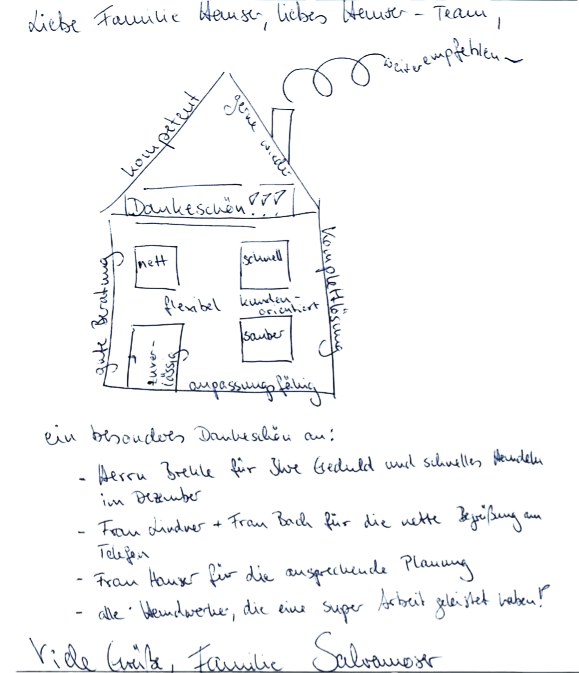 Liebe Familie Hauser, liebes Hauser-Team,
weiterempfehlen
kompetent
gerne wieder
Dankeschön!!!
gute Beratung
nett
schnell
Komplettlösung
flexibel
kunden-
orientiert
zuver-
lässig
sauber
anpassungsfähig
ein besonderes Dankeschön an:
- Herrn Brehle für Ihre Geduld und schnelles Handeln
im Dezember
- Frau Lindner + Frau Bach für die nette Begrüßung am
Telefon
- Frau Hauser für die ansprechende Planung
- alle Handwerker, die eine super Arbeit geleistet haben!
Viele Grüße, Familie Salvamoser